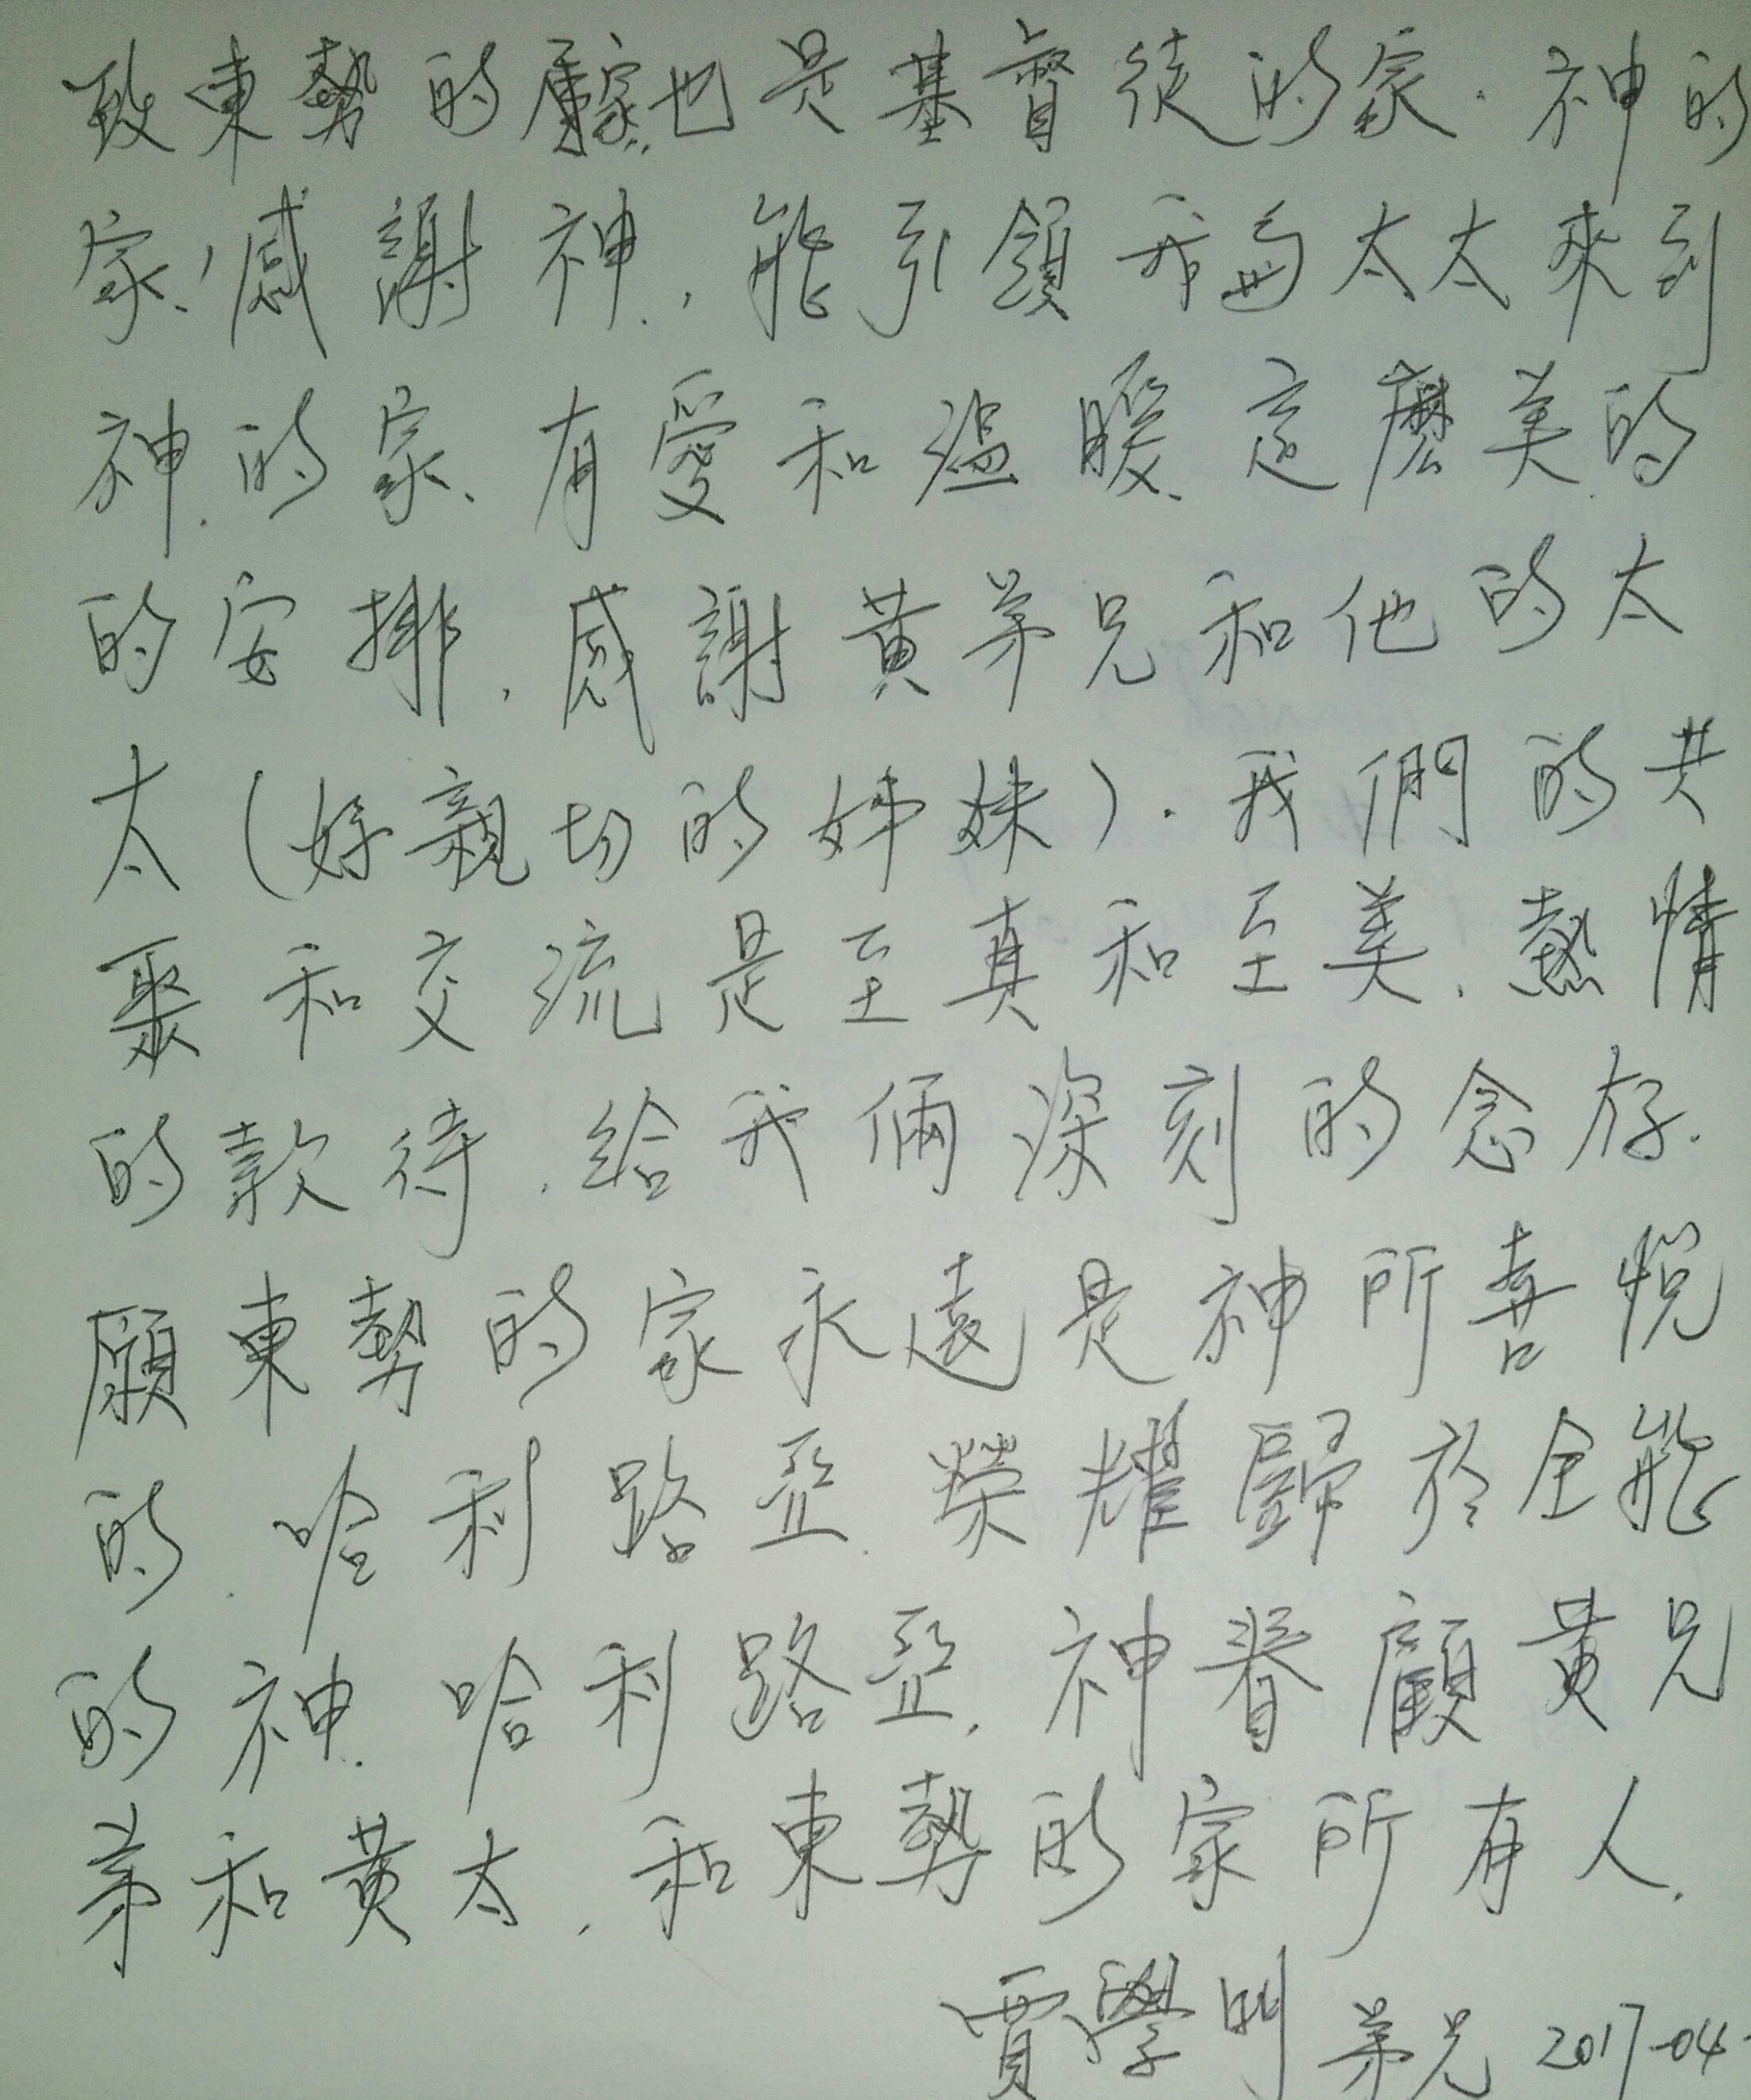 致東勢的家也是基督徒的家.神的
家,感謝神,能引領我与太太來到
神的家、有愛和溫暖、這麼美的
的安排,感謝黃弟兄和他的太
太(好親切的姊妹).我們的共
聚和交流是至真和至美、熱情
的款待、給我倆深刻的念存.
願東勢的家永遠是神所喜悅
的.哈利路亞.榮耀歸於全能
的神.哈利路亞,神眷顧黃兄
弟和黃太,和東勢的家所有人.
賈學明弟兄 2017-04-